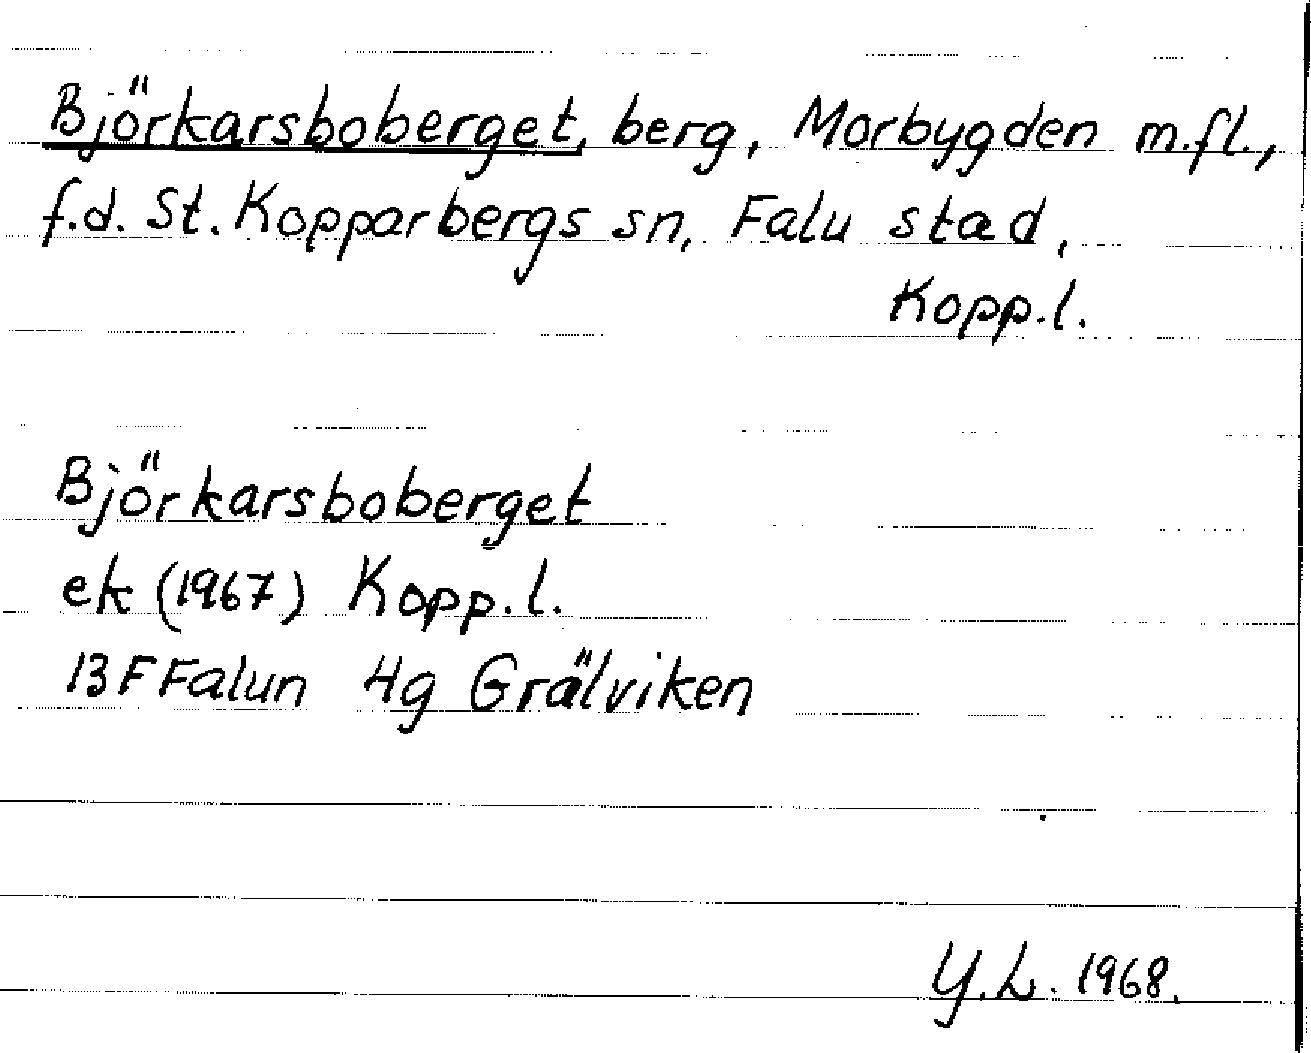 Björkarsboberget, berg, Morbygden m.fl.,
f.d. St. Kopparbergs sn, Falu stad,
Kopp.l.
Björkarsboberget
ek (1967) Kopp.l.
13F Falun 4g Grälviken
Y.L. 1968.